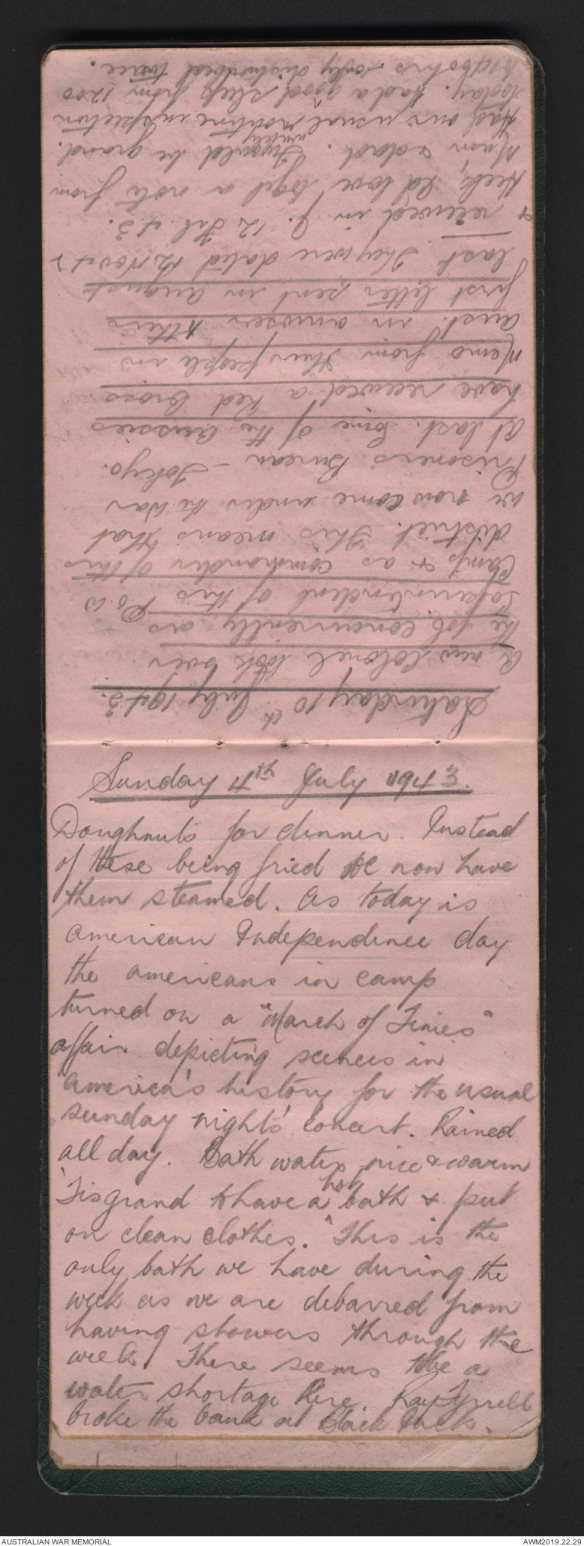 Sunday 4th July 1943.
Doughnuts for dinner. Instead
of these being fried we now have
them steamed. As today is
American Independence day
the americans in camp
turned on a "March of Times"
affair depicting scenes in
America's history for the usual
Sunday night's concert. Rained
all day. Bath water nice & warm
'Tis grand to have a hot bath & put
on clean clothes. This is the
only bath we have during the
week as we are debarred from
having showers through the
week. There seems to be a
water shortage here. Ray Tyrrell
broke the bank at Black Jack.
Saturday 10th July 1943.
A new Colonel took over
the job concurrently as
superintendent of this P.O.W
Camp & as commander of this
district. This means that
we now come under the War
Prisoners Bureau - Tokyo.
At last. Some of the Aussies
have received a Red Cross
memo from their people in
Aust. in answer to their
first letter sent in August
last. They were dated 12 Nov 42
& received in J. 12 Feb 43.
Heck, I'd love to get a note from
Mum & dad. Twould be grand.
Had our usual monthly routine inspection
today. Had a good sleep from 1200
to 1400 hrs only disturbed twice.
AUSTRALIAN WAR MEMORIAL
AWM2019.22.29